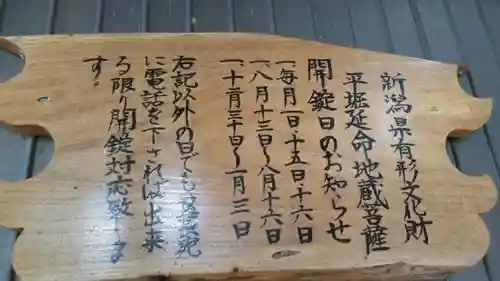 新潟県有形文化財
平堀延命地蔵菩薩
開錠日のお知らせ
一、毎月一日・十五日・十六日
一、八月十三日〜八月十六日
一、十二月三十日〜一月三日
右記以外の日でも
に電話を下されば出来
る限り開錠対応致しま
す。